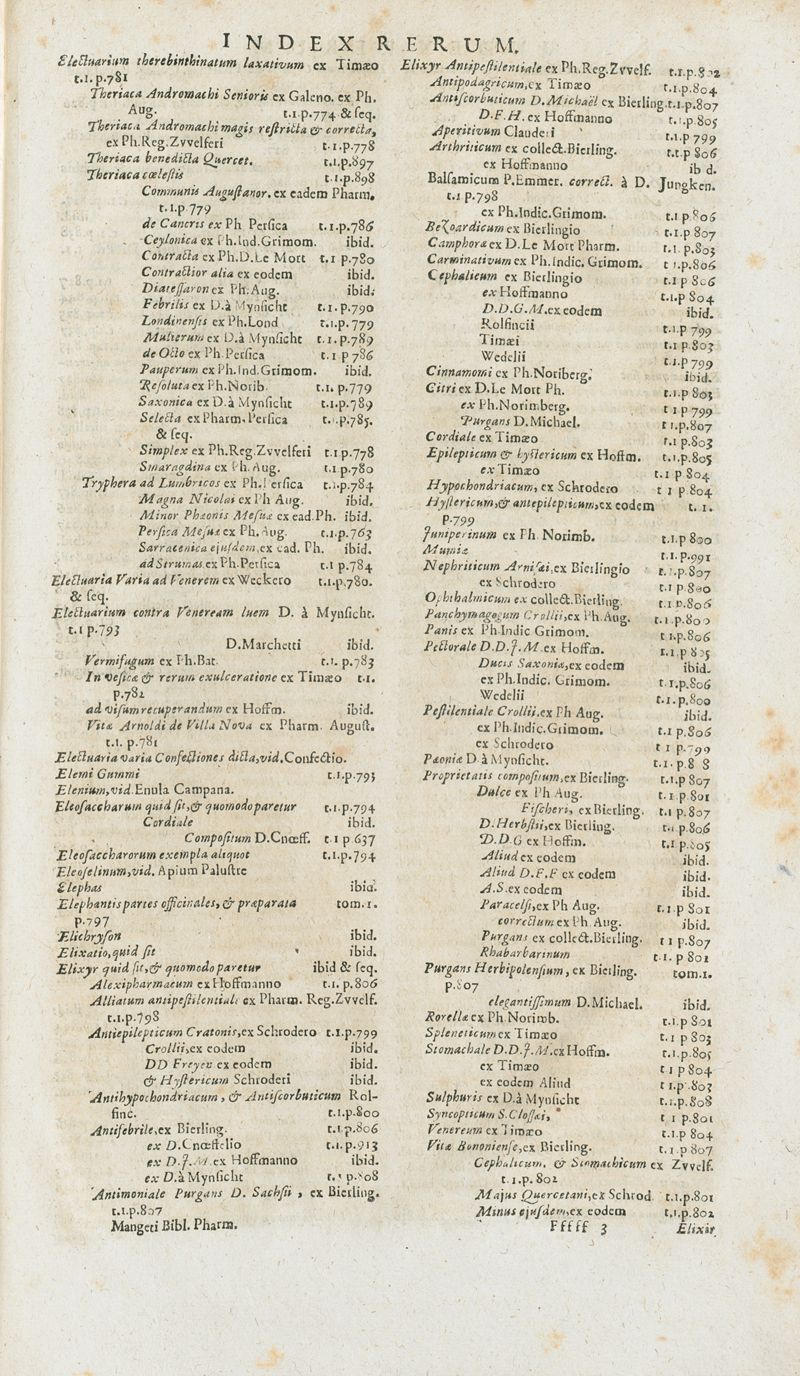 INDEX RERUM.
Electuarium therebinthinatum laxativum ex Timæo
t.1.p.781
Theriaca Andromachi Senioris ex Galeno. ex Ph.
Aug. t.1.p.774 & ſeq.
Theriaca Andromachi magis reſtricta & correcta,
ex Ph.Reg.Zvvelferi t.1.p.778
Theriaca benedicta Quercet. t.1.p.897
Theriaca cœleſtis t.1.p.898
Communis Auguſtanor. ex eadem Pharm.
t.1.p.779
de Cancris ex Ph Perſica t.1.p.786
Ceylonica ex Ph.Ind.Grimom. ibid.
Contracta ex Ph.D.Le Mort t.1 p.780
Contractior alia ex eodem ibid.
Diateſſaron ex Ph.Aug. ibid.
Febrilis ex D.à Mynſicht t.1.p.790
Londinenſis ex Ph.Lond t.1.p.779
Mulierum ex D.à Mynſicht t.1.p.789
de Octo ex Ph.Perſica t.1 p 786
Pauperum ex Ph.Ind.Grimom. ibid.
Reſoluta ex Ph.Norib. t.1. p.779
Saxonica ex D.à Mynſicht t.1.p.789
Selecta ex Pharm.Perſica t.1.p.785.
& ſeq.
Simplex ex Ph.Reg.Zvvelferi t.1 p.778
Smaragdina ex Ph. Aug. t.1.p.780
Tryphera ad Lumbricos ex Ph.Perſica t.1.p.784
Magna Nicolai ex Ph Aug. ibid.
Minor Phæonis Meſuæ ex ead.Ph. ibid.
Perſica Meſuæ ex Ph. Aug. t.1.p.763
Sarracenica ejuſdem,ex ead. Ph. ibid.
ad Strumas ex Ph.Perſica t.1 p.784
Electuaria Varia ad Venerem ex Weckero t.1.p.780.
& ſeq.
Electuarium contra Veneream luem D. à Mynſicht.
t.1 p.793
D.Marchetti ibid.
Vermifugum ex Ph.Bat. t.1. p.783
In veſicæ & rerum exulceratione ex Timæo t.1.
p.782
ad viſum recuperandum ex Hoffm. ibid.
Vitæ Arnoldi de Villa Nova ex Pharm. Auguſt.
t.1. p.781
Electuaria varia Confectiones dicta,vid.Confectio.
Elemi Gummi t.1.p.793
Elenium,vid.Enula Campana.
Eleoſaccharum quid ſit,& quomodo paretur t.1.p.794
Cordiale ibid.
Compoſitum D.Cnœff. t.1 p 637
Eleoſaccharorum exempla aliquot t.1.p.794
Eleoſelinum,vid. Apium Paluſtre
Elephas ibid.
Elephantis partes officinales, & præparata tom.1.
p.797
Elichryſon ibid.
Elixatio,quid ſit ibid.
Elixyr quid ſit,& quomodo paretur ibid & ſeq.
Alexipharmacum ex Hoffmanno t.1. p.806
Alliatum antipeſtilentiale ex Pharm. Reg.Zvvelf.
t.1.p.798
Antiepilepticum Cratonis,ex Schrodero t.1.p.799
Crollii,ex eodem ibid.
DD Freyeu ex eodem ibid.
& Hyſtericum Schroderi ibid.
Antihypochondriacum, & Antiſcorbuticum Rol-
finc. t.1.p.800
Antifebrile,ex Bierling. t.1.p.806
ex D.Cnœffelio t.1.p.913
ex D.J.M.ex Hoffmanno ibid.
ex D.à Mynſicht t.1 p.808
Antimoniale Purgans D. Sachſii, ex Bierling.
t.1.p.807
Mangeti Bibl. Pharm.
Elixyr Antipeſtilentiale ex Ph.Reg.Zvvelf. t.1.p.802
Antipodagricum,ex Timæo t.1.p.804
Antiſcorbuticum D.Michaël ex Bierling.t.1.p.807
D.F.H. ex Hoffmanno t.1.p.805
Aperitivum Clauderi t.1.p 799
Arthriticum ex collect.Bierling. t.1.p 806
ex Hoffmanno ib d.
Balſamicum P.Emmer. correct. à D. Jungken.
t.1 p.798
ex Ph.Indic.Grimom. t.1 p.806
Bezoardicum ex Bierlingio t.1.p 807
Camphoræ ex D.Le Mort Pharm. t.1. p.803
Carminativum ex Ph.Indic. Grimom. t 1.p.806
Cephalicum ex Bierlingio t.1 p 806
ex Hoffmanno t.1.p 804
D.D.G.M.ex eodem ibid.
Rolfincii t.1.p 799
Timæi t.1 p.803
Wedelii t.1.p 799
Cinnamomi ex Ph.Noriberg. ibid.
Citri ex D.Le Mort Ph. t.1.p 803
ex Ph.Norimberg. t 1 p 799
Purgans D.Michael. t 1.p.807
Cordiale ex Timæo t.1 p.803
Epilepticum & hyſtericum ex Hoffm. t.1.p.805
ex Timæo t.1 p 804
Hypochondriacum, ex Schrodero t 1 p.804
Hyſtericum,& antepilepticum,ex eodem t. 1.
p.799
Juniperinum ex Ph Norimb. t.1.p 800
Mumiæ t.1.p.991
Nephriticum Arniſæi,ex Bierlingio t.1.p.807
ex Schrodero t.1 p 800
Ophthalmicum ex collect.Bierling. t.1 p.806
Panchymagogum Crollii,ex Ph.Aug. t.1.p.800
Panis ex Ph Indic Grimom. t 1.p.806
Pectorale D.D.J.M.ex Hoffm. t.1.p 805
Ducis Saxoniæ,ex eodem ibid.
ex Ph.Indic. Grimom. t.1.p.806
Wedelii t.1.p.800
Peſtilentiale Crollii.ex Ph Aug. ibid.
ex Ph.Indic.Grimom. t.1 p.806
ex Schrodero t 1 p.799
Pæoniæ D à Mynſicht. t.1.p.8 8
Proprietatis compoſitum,ex Bierling. t.1.p 807
Dulce ex Ph Aug. t.1.p.801
Fiſcheri, ex Bierling. t.1 p.807
D.Herbſtii,ex Bierling. t.1 p.806
D.D.G ex Hoffm. t.1 p.805
Aliud ex eodem ibid.
Aliud D.F.F ex eodem ibid.
A.S.ex eodem ibid.
Paracelſi,ex Ph Aug. t.1.p 801
correctum ex Ph. Aug. ibid.
Purgans ex collect.Bierling. t 1 p.807
Rhabarbarinum t.1. p 801
Purgans Herbipolenſium, ex Bierling. tom.1.
p.807
elegantiſſimum D.Michael. ibid.
Rorellæ ex Ph.Norimb. t.1.p 801
Spleneticum ex Timæo t.1 p 803
Stomachale D.D.J.M.ex Hoffm. t.1.p.805
ex Timæo t 1 p 804
ex eodem Aliud t 1.p.803
Sulphuris ex D.à Mynſicht t.1.p.808
Syncopticum S.Cloſſæi, t 1 p.801
Venereum ex Timæo t.1.p 804
Vitæ Bononienſe,ex Bierling. t.1.p 807
Cephalicum, & Stomachicum ex Zvvelf.
t.1.p. 802
Majus Quercetani,ex Schrod. t.1.p.801
Minus ejuſdem,ex eodem t.1.p.802
Fffff 3 Elixir